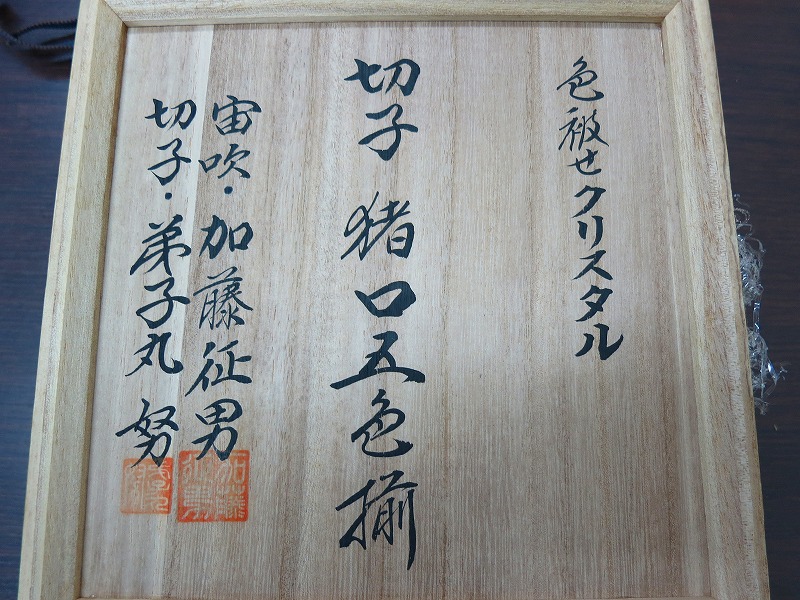 色被せクリスタル
切子 猪口五色揃
宙吹・加藤征男
切子・弟子丸 努